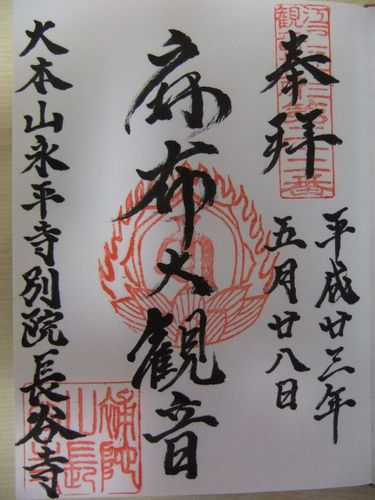 奉拝
平成廿三年
五月廿八日
麻布大観音
大本山永平寺別院長谷寺